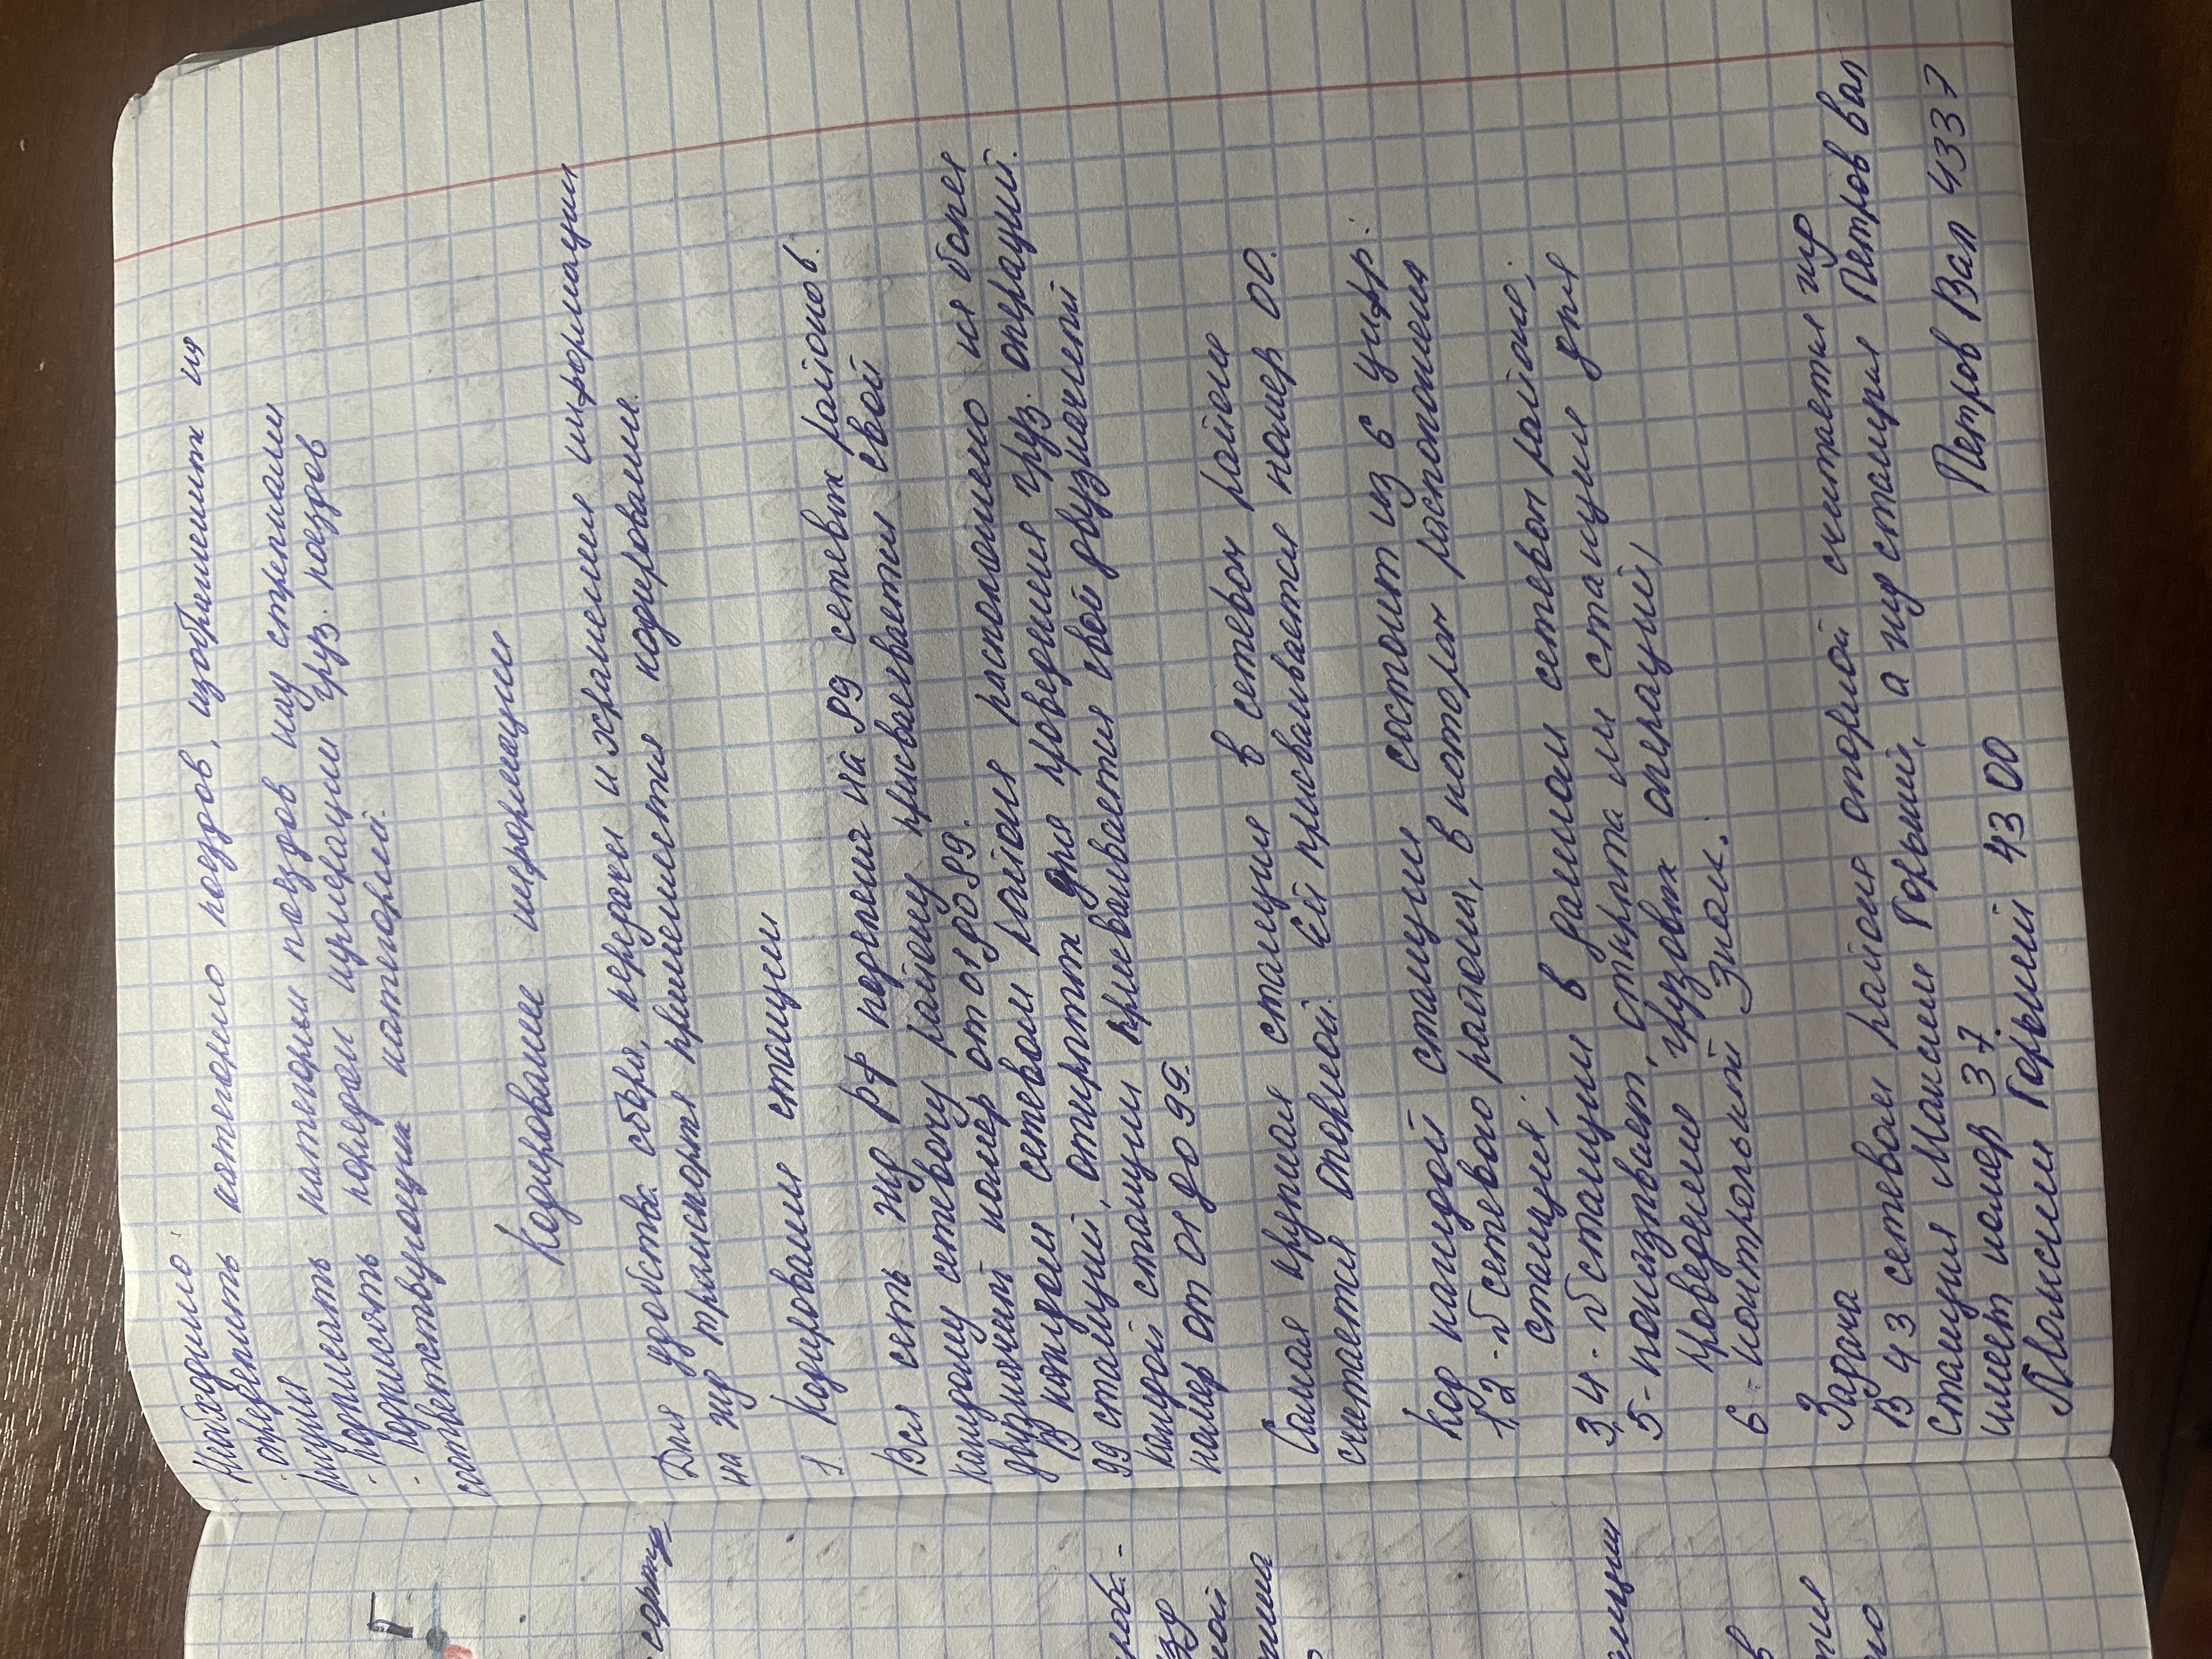 Необходимо:
- определить категорию поездов, изображених на
рисунке
- подписать категории поездов над стрелками
- подписать порядок нумерации груз. поездов
соответствующих категорий.
Кодирование информации
Для удобства сбора, передачи и хранения информации
на жд транспорте применяется кодирование.
1. Кодирование станции
Вся сеть жд РФ поделена на 99 сетевых районов.
Каждому сетевому району присваевается свой
двузначный номер от 01 до 99.
В каждом сетевом районе расположено не более
99 станций, открытых для проведения груз. операций.
Каждой станции присваивается свой двузначный
номер от 01 до 99.
Самая крупная станция в сетевом районе
счетается опорной. Ей присваивается номер 00.
Код каждой станции состоит из 6 цифр:
1,2 - № сетевого района, в котором расположена
станция;
3,4 - № станции в данном сетевом районе;
5 - показывает, открыта ли станция для
проведения грузовых операций;
6 - контрольный знак.
Задача
В 43 сетевом районе опорной считается жд
станция Максим Горький, а жд станция Петров Вал
имеет номер 37.
Максим Горький 43 00 Петров Вал 4337
5
сорти
ной
в